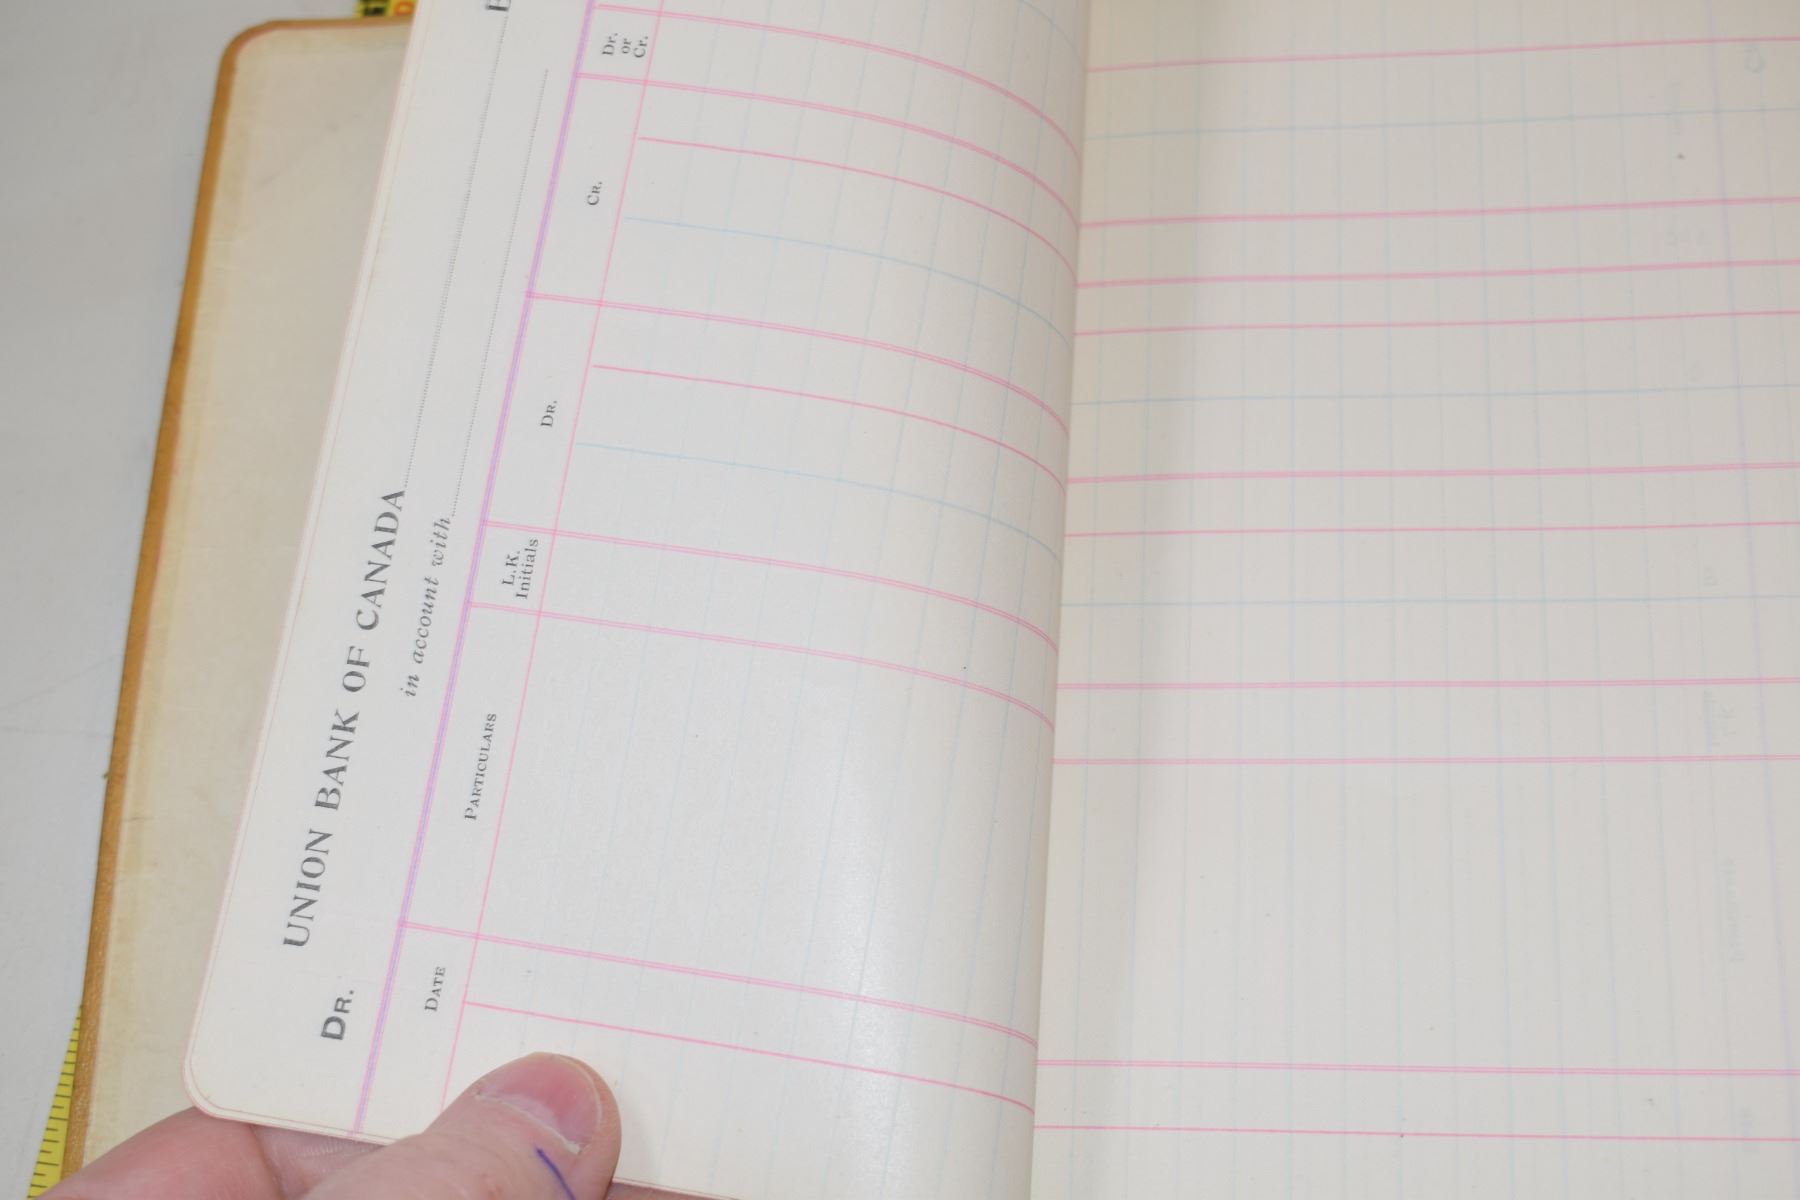 UNION BANK OF CANADA
Dr.
in account with
Date
Particulars
L.K.
Initials
Dr.
Cr.
Dr.
or
Cr.